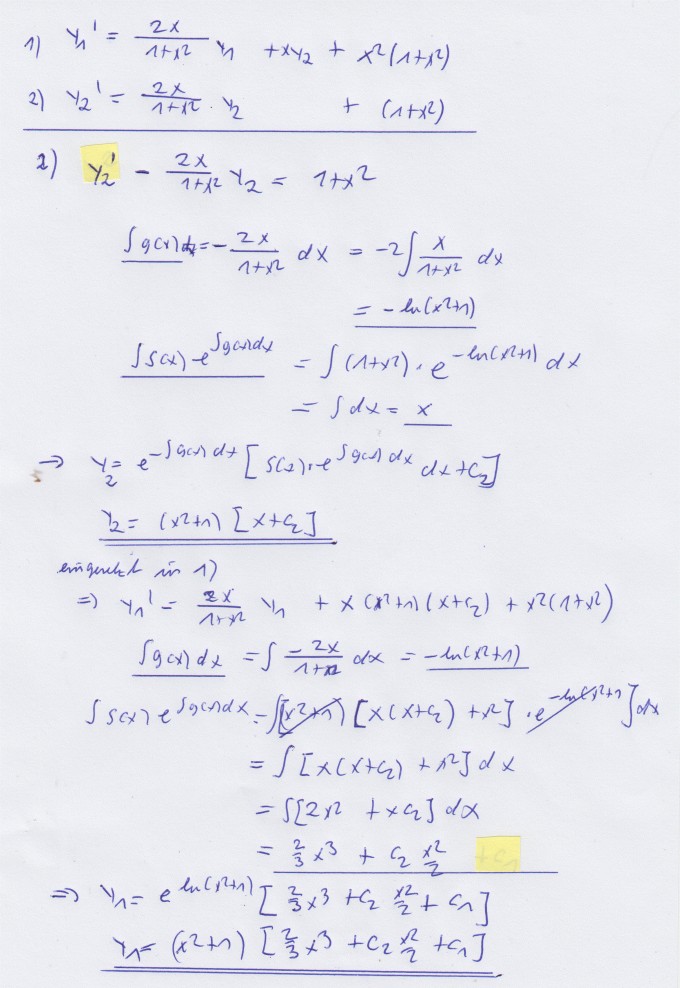 1) y₁' = 2x/(1+x²) y₁ + xy₂ + x²(1+x²)
2) y₂' = 2x/(1+x²) · y₂ + (1+x²)
2) y₂' - 2x/(1+x²) y₂ = 1+x²
∫g(x)dx = - 2x/(1+x²) dx = -2∫ x/(1+x²) dx
= -ln(x²+1)
∫s(x)·e^(∫g(x)dx) = ∫(1+x²)·e^(-ln(x²+1)) dx
= ∫dx = x
⇒ y₂ = e^(-∫g(x)dx) [ s(x)·e^(∫g(x)dx) dx + c₂]
y₂ = (x²+1) [x+c₂]
eingesetzt in 1)
⇒ y₁' = 2x/(1+x²) y₁ + x(x²+1)(x+c₂) + x²(1+x²)
∫g(x)dx = ∫ -2x/(1+x²) dx = -ln(x²+1)
∫s(x) e^(∫g(x)dx) = ∫[(x²+1) [x(x+c₂) + x²] · e^(-ln(x²+1)]dx
= ∫[x(x+c₂) + x²] dx
= ∫[2x² + xc₂] dx
= 2/3 x³ + c₂ x²/2 + c₁
⇒ y₁ = e^(ln(x²+1)) [2/3 x³ + c₂ x²/2 + c₁]
y₁ = (x²+1) [2/3 x³ + c₂ x²/2 + c₁]